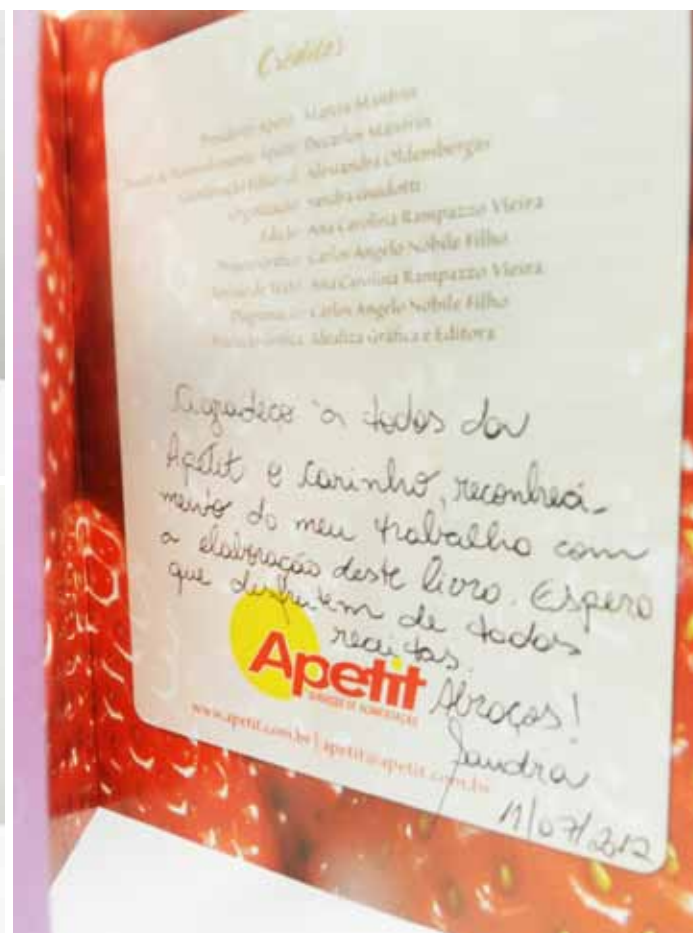 Créditos
Presidente Apetit: Marcia Manfrin
Apetit: Decarlos Manfrin
Alessandra Oldemberga
Organização: Sandra Guidotti
Edição: Ana Carolina Rampazzo Vieira
Projeto Gráfico: Carlos Angelo Nobile Filho
Revisão de Texto: Ana Carolina Rampazzo Vieira
Diagramação: Carlos Angelo Nobile Filho
Produção Gráfica: Idealiza Gráfica e Editora
Agradeço a todos da
Apetit e carinho, reconheci-
mento do meu trabalho com
a elaboração deste livro. Espero
que disfrutem de todas
receitas.
Apetit
SERVIÇOS DE ALIMENTAÇÃO
Abraços!
www.apetit.com.br | apetit@apetit.com.br
Sandra
11/07/2012